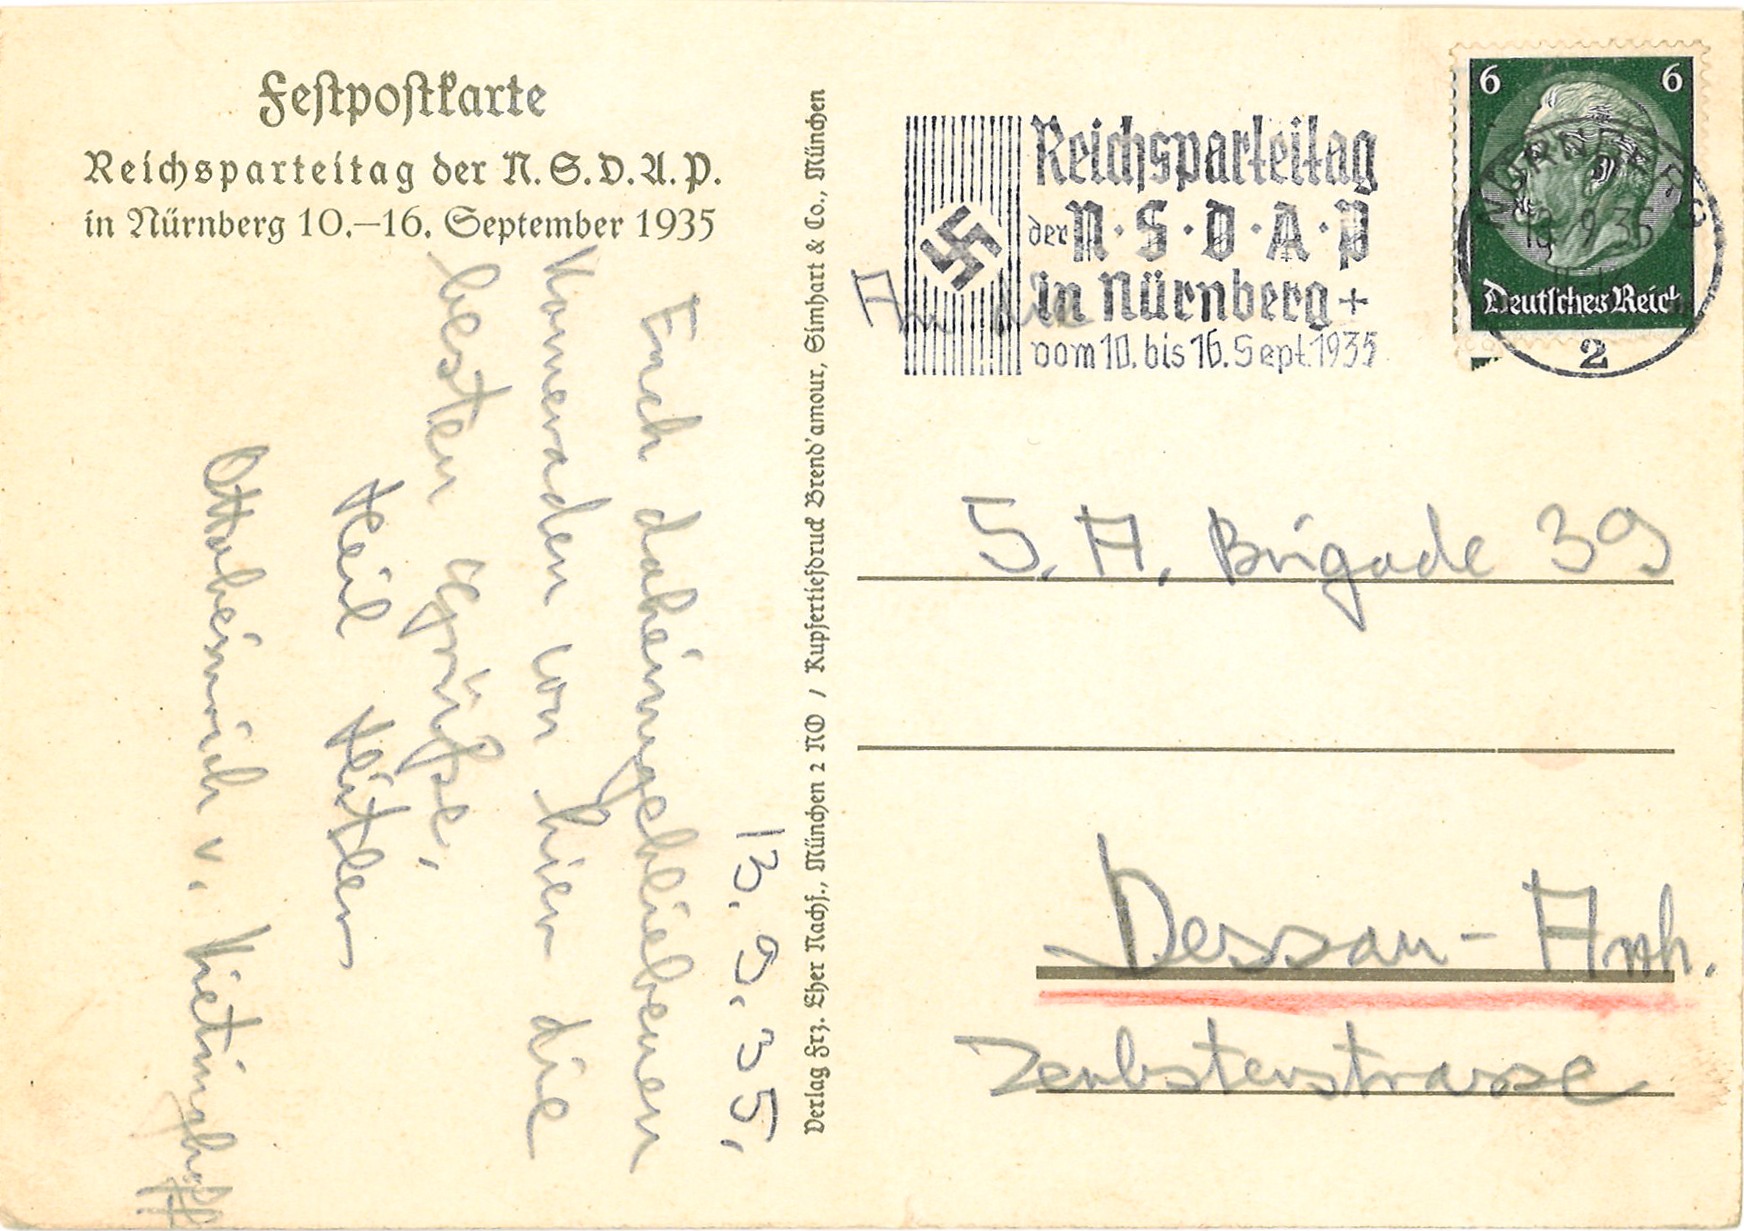 Festpostkarte
Reichsparteitag der N.S.D.A.P.
in Nürnberg 10.–16. September 1935
13. 9. 35.
Euch daheimgebliebenen
Kameraden von hier die
besten Grüße,
Heil Hitler
Ottoheinrich v. Vietinghoff
Verlag Frz. Eher Nachf., München 2 NO / Kupfertiefdruck Brend'amour, Simhart & Co., München
Reichsparteitag
der N·S·D·A·P
in Nürnberg +
vom 10. bis 16. Sept. 1935
6 6
Deutsches Reich
NÜRNBERG
2
An die
S. A. Brigade 39
Dessau - Anh.
Zerbsterstrasse